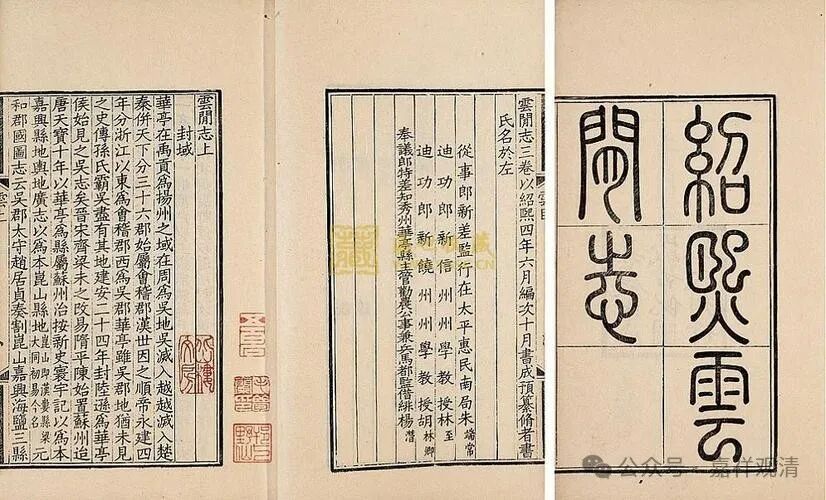 紹熙雲
閒志
雲閒志三卷以紹熙四年六月編次十月書成預纂脩者書
氏名於左
從事郎新差監行在太平惠民南局朱端常
迪功郎新信州州學教授林至
迪功郎新饒州州學教授胡林卿
奉議郎特差知秀州華亭縣主管勸農公事兼兵馬都監借緋楊潛
雲閒志上
封域
華亭在禹貢爲揚州之域在周爲吳地吳滅入越越滅入楚
秦併天下分三十六郡始屬會稽郡漢世因之順帝永建四
年分浙江以東爲會稽郡西爲吳郡華亭雖吳郡地猶未見
之史傳孫氏霸吳盡有其地建安二十四年封陸遜爲華亭
侯始見之吳志矣晉宋齊梁未之改易隋平陳始置蘇州迨
唐天寶十年以華亭爲縣屬蘇州治按新史寰宇記以爲本
嘉興縣地輿地廣志以爲本崑山縣地崑山即漢婁縣梁大同初易今名元
和郡國圖志云吳郡太守趙居貞奏割崑山嘉興海鹽三縣
公众号 · 嘉祥观清